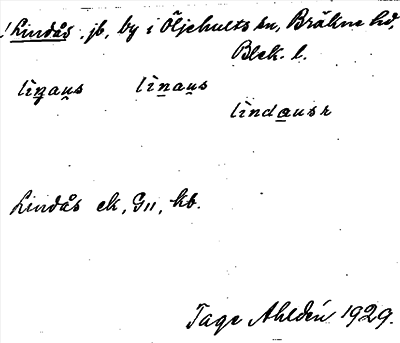 ! Lindås, jb, by i Öljehults sn, Bräkne hd,
Blek. l.
liṉau̱s liṉau̱s
linda̱usr
Lindås ek, G11, kb.
Tage Ahldén 1929.